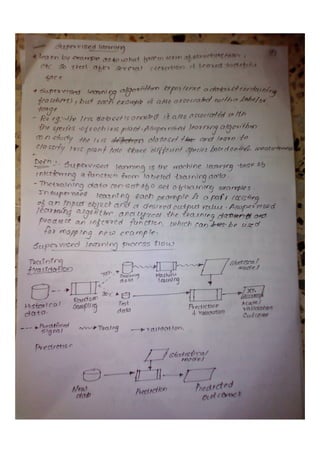 Supervised learning
* learn by example as to what face in term of structure, color,
etc so that after several iteration it learned to define
face
+ Supervised learning algorithm experience a dataset containing
features, but each example is also associated with a label or
target
- For eg. the iris dataset is associated with
the species of each iris plant. A supervised learning algorithm
can study the iris dataset and learn to
classify iris plant into three different species based on their measurement
Defn :- Supervised learning is the machine learning task of
inferring a function from labeled training data.
- The training data consist of a set of training examples
In supervised learning each example is a pair consisting
of an input object and a desired output value. A supervised
learning algorithm analyzed the training data and
produce an inferred function, which can be used
for mapping new example.
Supervised learning process flow
Training
& validation
Statistical
model
70%
Training
data
Machine
learning
Historical
data
Random
Sampling
30%
Test
data
Prediction
& validation
Model
validation
Outcome
Predefined
signal
Training
Validation
Prediction
Statistical
model
New
data
Prediction
Predicted
outcomes